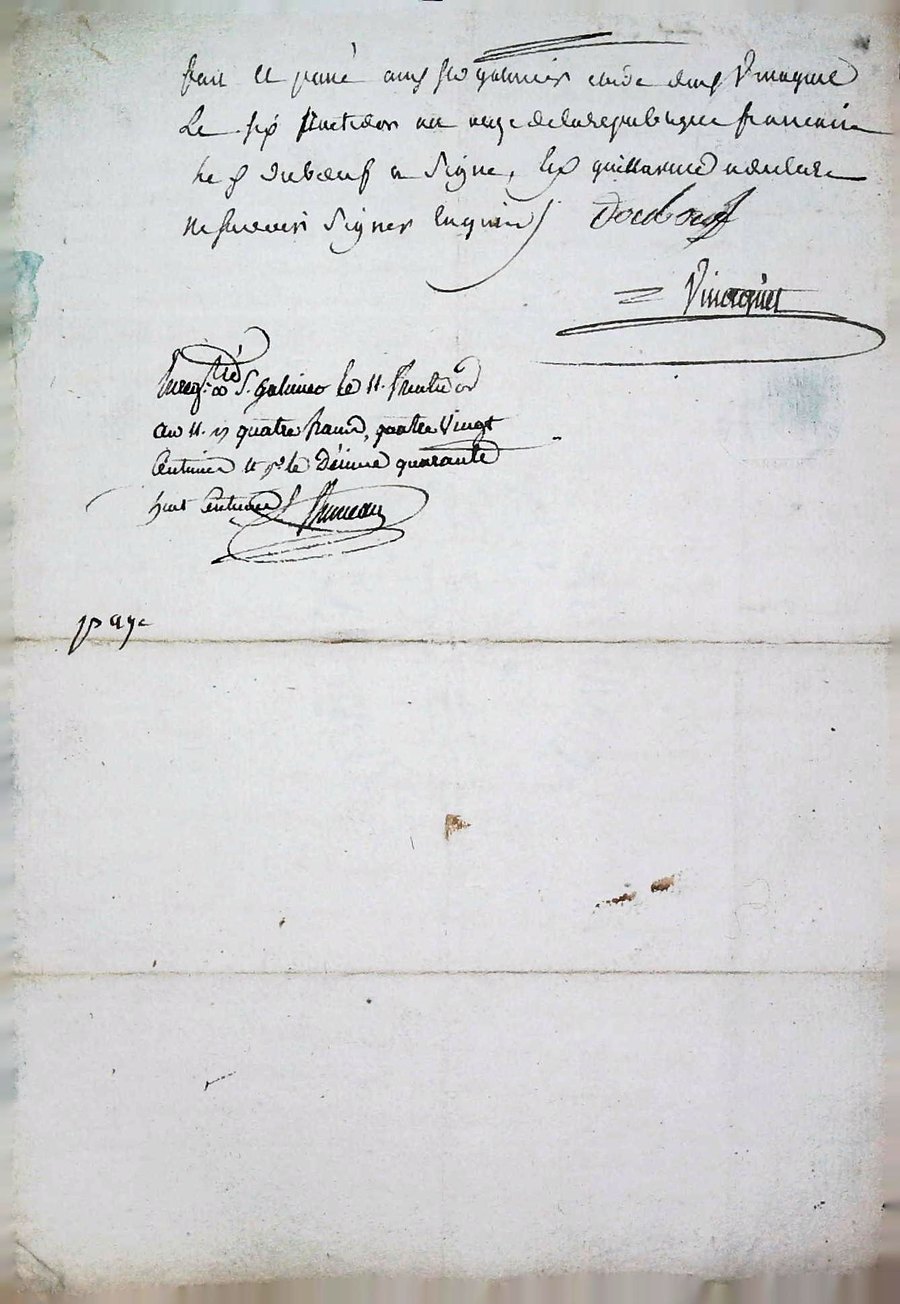 fait et passé aud st galmier étude dud Vinaquet
Le six fructidor an onze de la republique francaise
Le d duboeuf a Signé, Les guillarme
Signer Enquis
Duboeuf
Vinaquet
Enregtré à St galmier le 11. Fructidor
an 11. R quatre francs, quatre Vingt
Centimes et pr le Décime quarante
huit Centimes Bruneau
paye